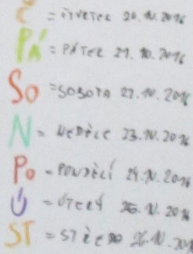 Č = ČTVRTEK 20.10.2016
PÁ = PÁTEK 21.10.2016
SO = SOBOTA 22.10.2016
N = NEDĚLE 23.10.2016
PO = PONDĚLÍ 24.10.2016
Ú = ÚTERÝ 25.10.2016
ST = STŘEDA 26.10.2016